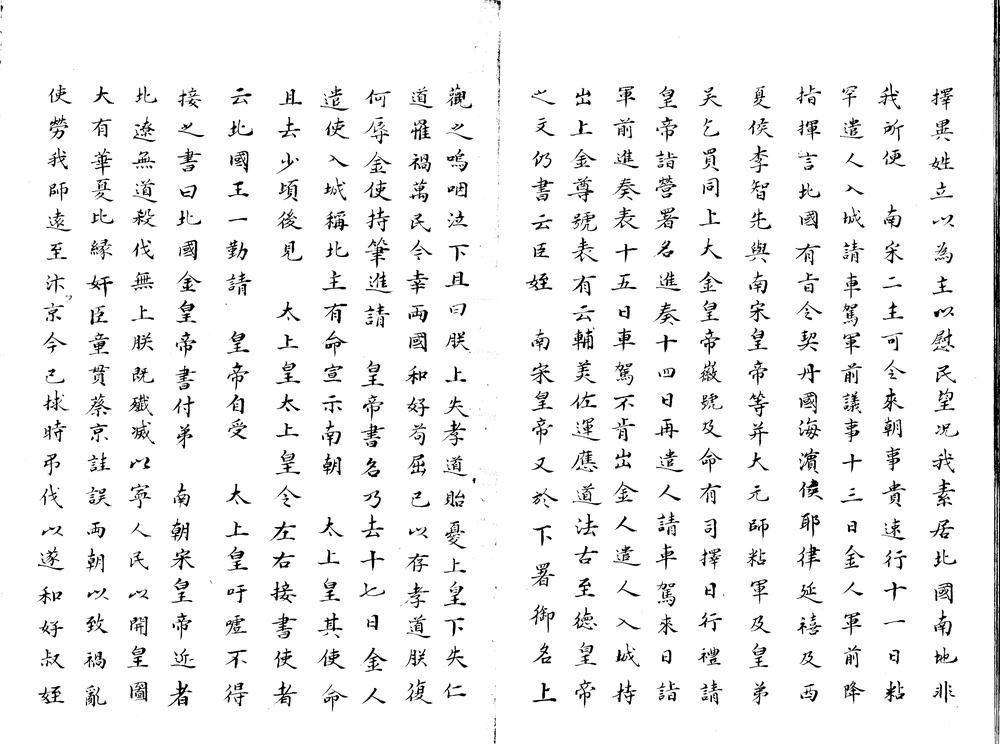 擇異姓立以為主以慰民望况我素居北國南地非
我所便　南宋二主可令來朝事貴速行十一日粘
罕遣人入城請車駕軍前議事十三日金人軍前降
指揮言北國有旨令契丹國海濱侯耶律延禧及西
夏侯李智先與南宋皇帝等并大元師粘軍及皇弟
吴乞買同上大金皇帝徽號及命有司擇日行禮請
皇帝詣營署名進奏十四日再遣人請車駕來日詣
軍前進奏表十五日車駕不肯出金人遣人入城持
出上金尊號表有云輔美佐運應道法古至德皇帝
之文仍書云臣姪　南宋皇帝又於下署御名上
觀之嗚咽泣下且曰朕上失孝道貽憂上皇下失仁
道罹禍萬民今幸兩國和好苟屈已以存孝道朕復
何辱金使持筆進請　皇帝書名乃去十七日金人
遣使入城稱北主有命宣示南朝　太上皇其使命
且去少頃後見　太上皇太上皇令左右接書使者
云北國王一勤請　皇帝自受　太上皇吁嘘不得
接之書曰北國金皇帝書付弟　南朝宋皇帝近者
北遼無道殺伐無上朕既殲滅以寧人民以開皇圖
大有華戛比緣奸臣童貫蔡京詿誤两朝以致禍亂
使勞我師遠至汴京今已捄時弔伐以遂和好叔姪